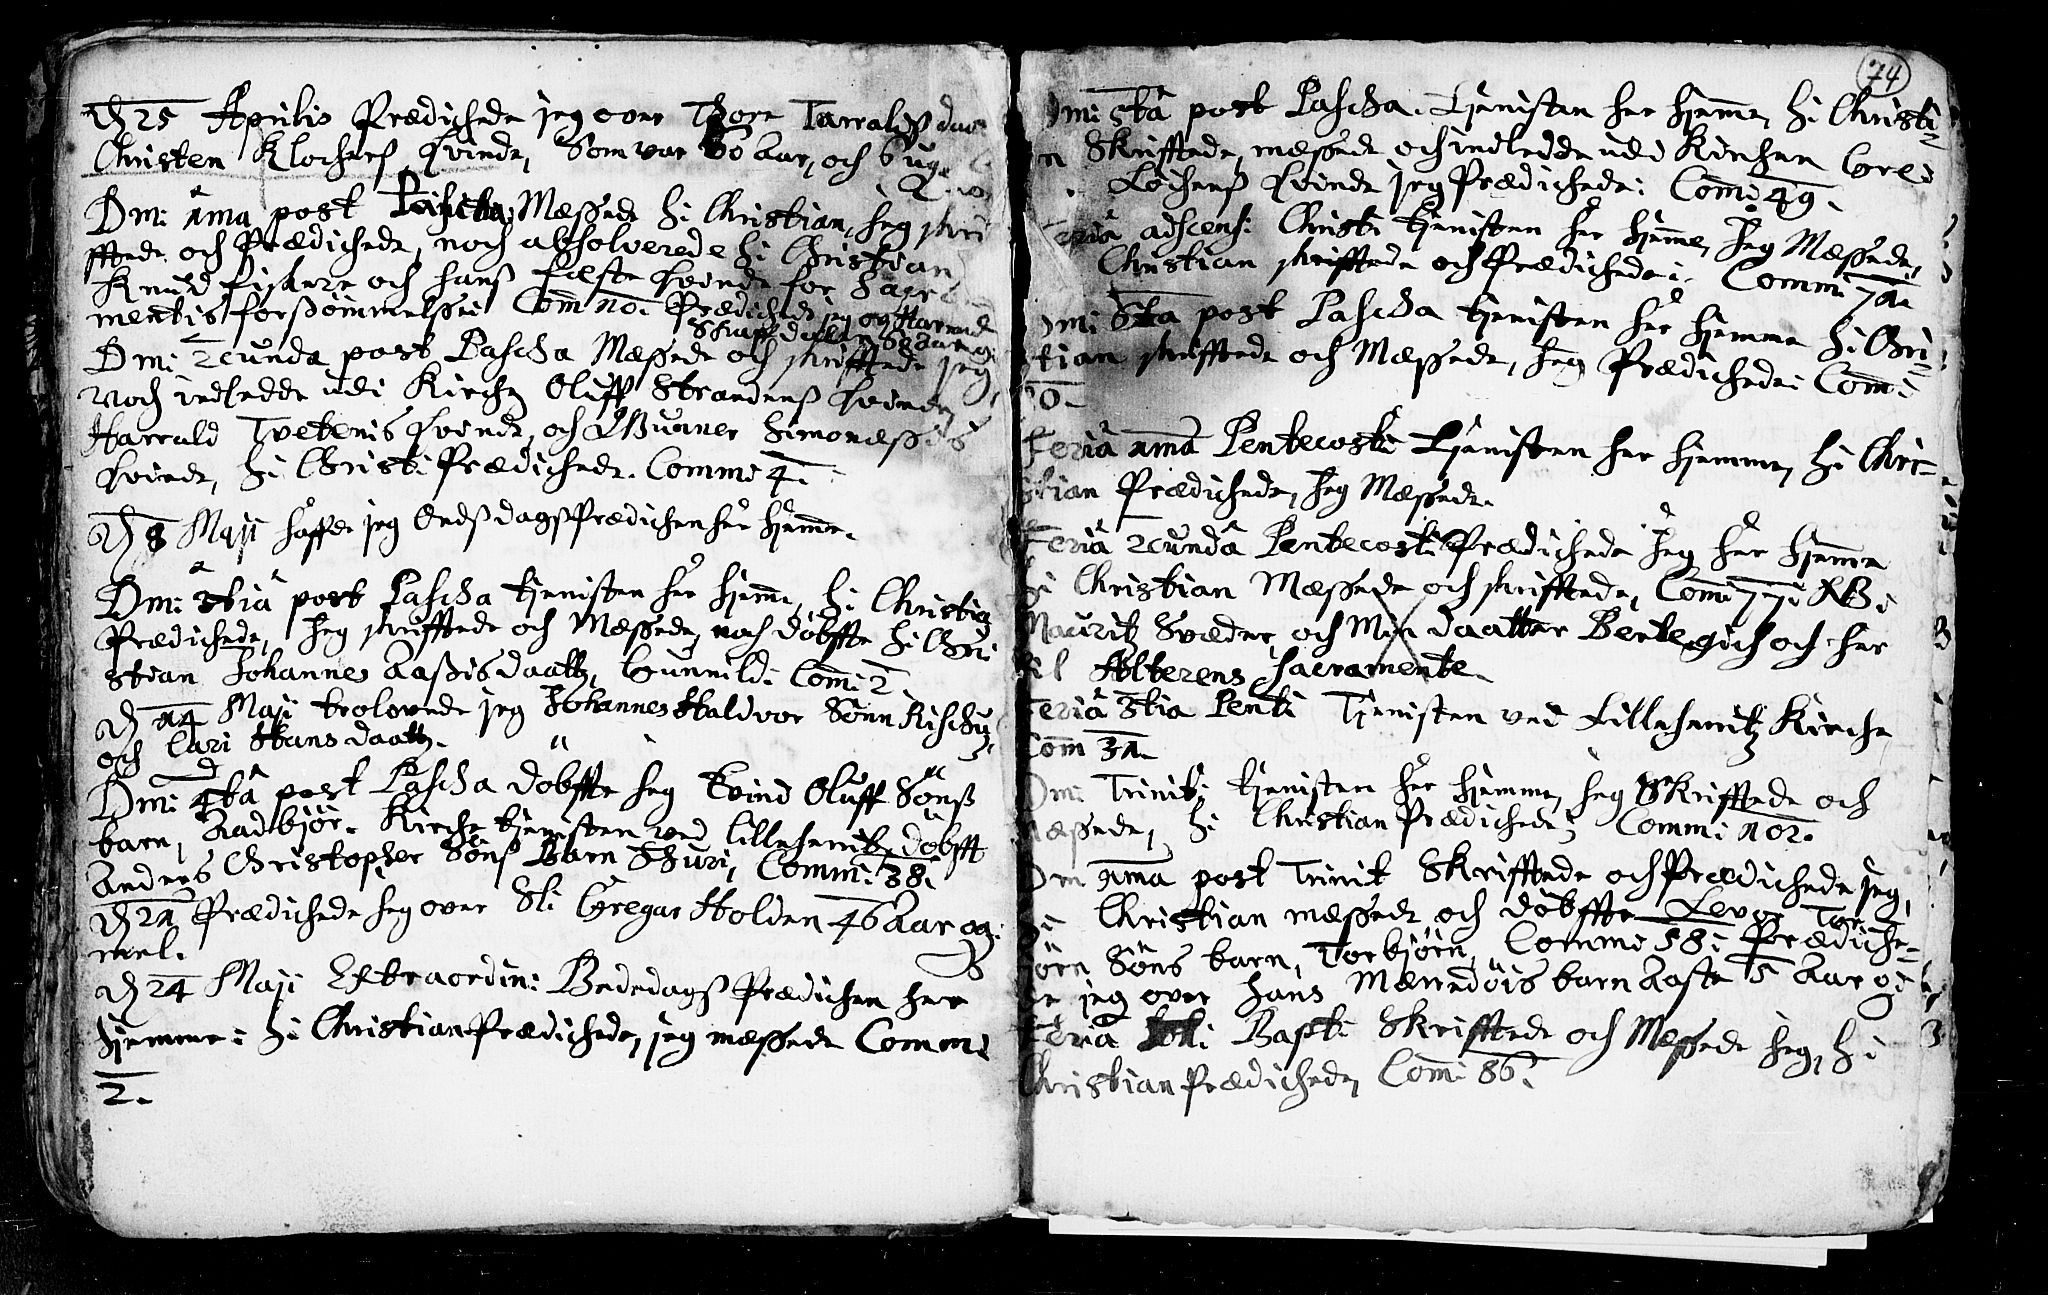 D 25 Aprilis Prædichede jeg over Thore Tarrald&szlig; daa
Christen Klochers Qvinde, Som var 80 Aar, och 6 uge
Dmi: 1ma post Pascha: Messede H: Christian, Jeg skri
fftede och Prædichede, noch absolverede H: Christian
Knud fishere och hans fæste Qvinde for Sacra
mentis forsømmelse: Com: 110: Prædichede jeg og
Dmi: 2cunda post Pascha Messede och skrifftede jeg
Noch indledde udi Kirchen Oluff Strandens Qvinde
Harrald Tvetenis Qvinde, och Gunner Simonessis
Qvinde, H: Christi: Prædichede. Commi 4:
D 8 Maji haffde jeg Ondsdags Prædichen her hjemme.
Dmi: 3tiâ post Pascha tjenisten her hjemme, H: Christia
Prædichede, Jeg skrifftede och Messede, noch döbffte H: Chri
stian Johannes Aasis daatter, Gunnild: Com: 2
D 14 Maji trolovede jeg Johannes Haldvor Sönn
och Cari Hans daatter.
Dmi: 4tâ post Pascha döbffte jeg Evind Oluff Söns
barn, Aadbjör. Kirche tjenisten ved Lilleherrit, döbfft
Anders Christopher Söns Barn Thuri, Commi: 38:
D 21 Prædichede jeg over Sl: Gregar Holden 46 Aar og
mel.
D 24 Maji Extraordin: Bededags Prædichen her
hjemme: H: Christian Prædichede, jeg messede Commi
2.
74
Dmi 5tâ post Pascha. Tjenisten her hjemme, H: Christi=
n Skrifftede, messede och indledde udi Kirchen
Lochens Qvinde jeg Prædichede: Com: 49.
Feriâ adscens: Christi tjenisten her hjemme, Jeg Messede,
Christian skrifftede och Prædichede: Commi 71.
Dmi 6ta post Pascha tjenisten her hjemme H: Chri=
stian skrifftede och Messede, Jeg Prædichede: Com:
50.
Feriâ 1ma Pentecosti Tjenisten her hjemme, H: Chri=
stian Prædichede, Jeg Messede.
Feriâ 2cundâ Pentecosti Prædichede Jeg her hjemme
H: Christian Messede och skrifftede, Com: 77: NB:
Mauritz Svæder, och Min daatter Berte gich och her
til Alterens Sacramente.
Feriâ 3tia Penti Tjenisten ved Lilleherritz Kirche
Com 31.
Dmi Trinit: tjenisten her hjemme, Jeg Skrifftede och
Messede, H: Christian Prædichede, Commi 102.
Dm 1ma post Trinit Skrifftede och Prædichede jeg,
H: Christian messede och döbffte Levor Tor=
björn Söns barn, Torbjörn, Commi 58: Prædiche=
de jeg over Hans Mæneröis barn Aaste 5 Aar og
Feriâ Joh: Bapt: Skrifftede och Messede Jeg, H:
Christian Prædichede, Com: 86.